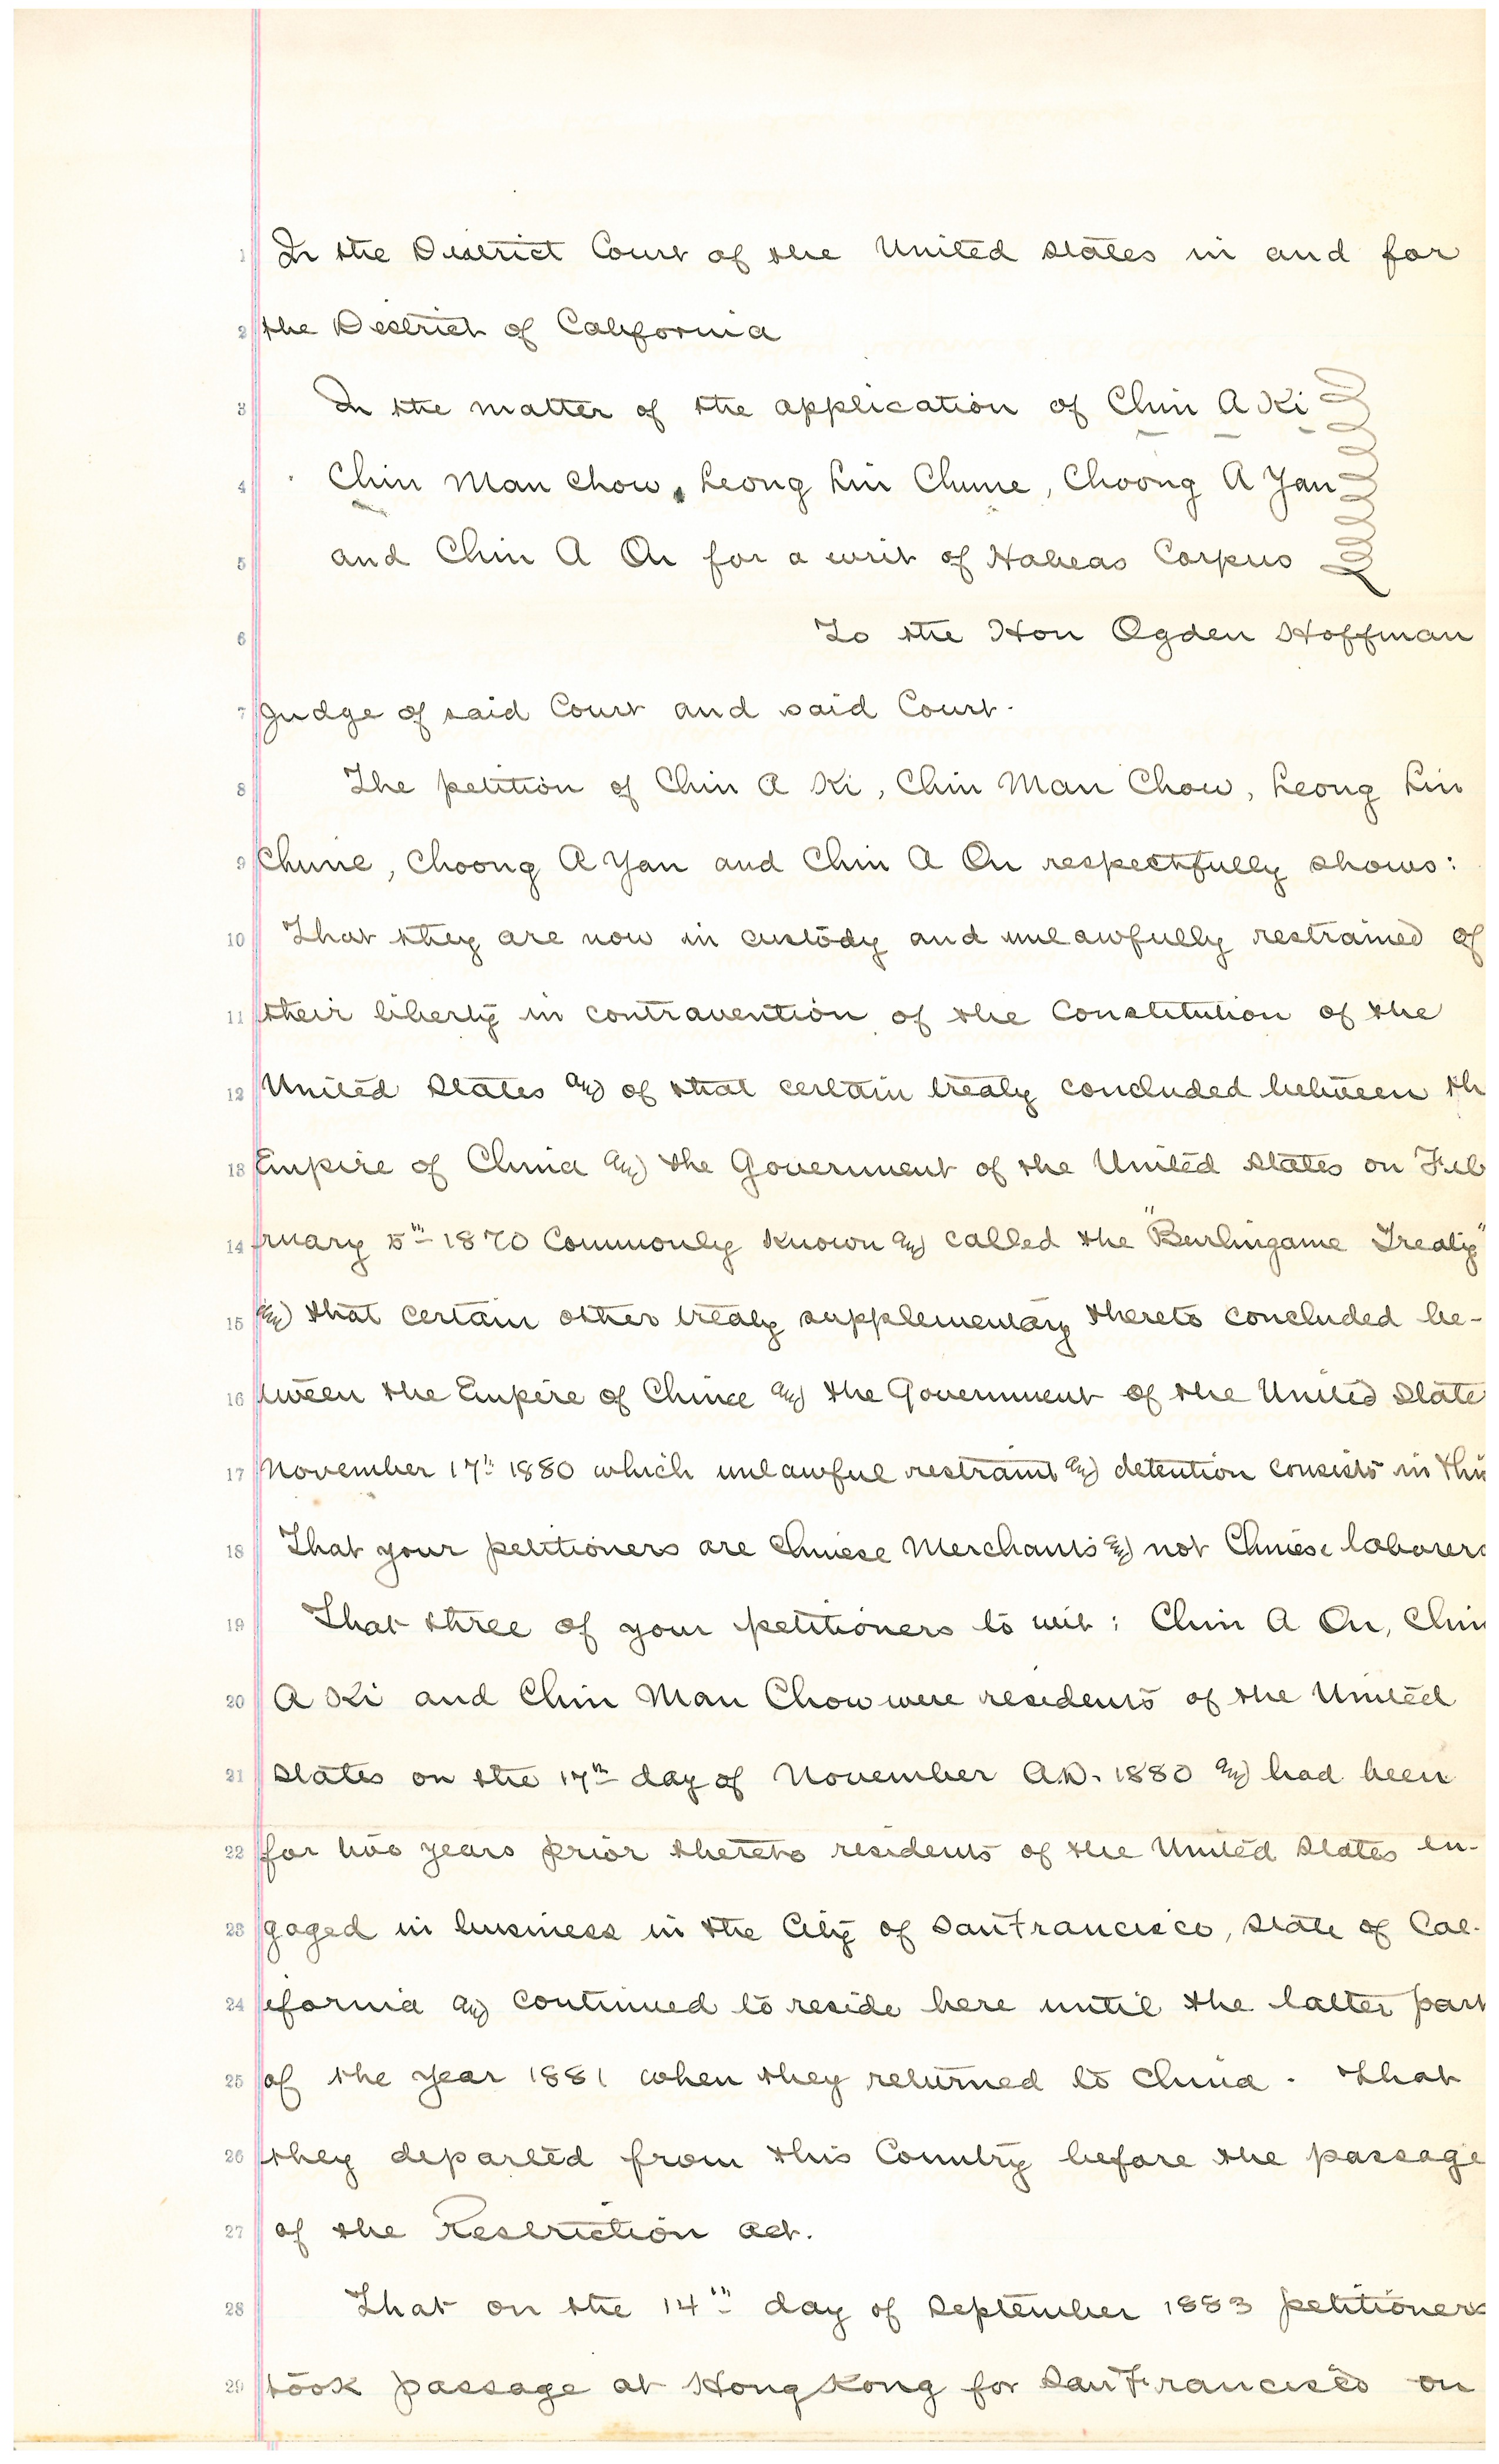 1 In the District Court of the United States in and for
2 the District of California
3 In the matter of the application of Chin A Ki
4 Chin Man Chow, Leong Lin Chune, Choong A Yan
5 and Chin A On for a writ of Habeas Corpus
6 To the Hon Ogden Hoffman
7 Judge of said Court and said Court.
8 The petition of Chin A Ki, Chin Man Chow, Leong Lin
9 Chune, Choong A Yan and Chin A On respectfully shows:
10 That they are now in custody and unlawfully restrained of
11 their liberty in contravention of the Constitution of the
12 United States and of that certain treaty concluded between th
13 Empire of China and the Government of the United States on Feb
14 ruary 5th 1870 Commonly known and called the "Burlingame Treaty"
15 and that certain other treaty supplementary thereto concluded be-
16 tween the Empire of China and the Government of the United State
17 November 17th 1880 which unlawful restraint and detention consists in this
18 That your petitioners are Chinese Merchants and not Chinese laborers
19 That three of your petitioners to wit: Chin A On, Chin
20 A Ki and Chin Man Chow were residents of the United
21 States on the 17th day of November A.D. 1880 and had been
22 for two years prior thereto residents of the United States en-
23 gaged in business in the City of San Francisco, State of Cal-
24 ifornia and continued to reside here until the latter part
25 of the year 1881 when they returned to China. That
26 they departed from this Country before the passage
27 of the Restriction act.
28 That on the 14th day of September 1883 petitioners
29 took passage at Hong Kong for San Francisco on